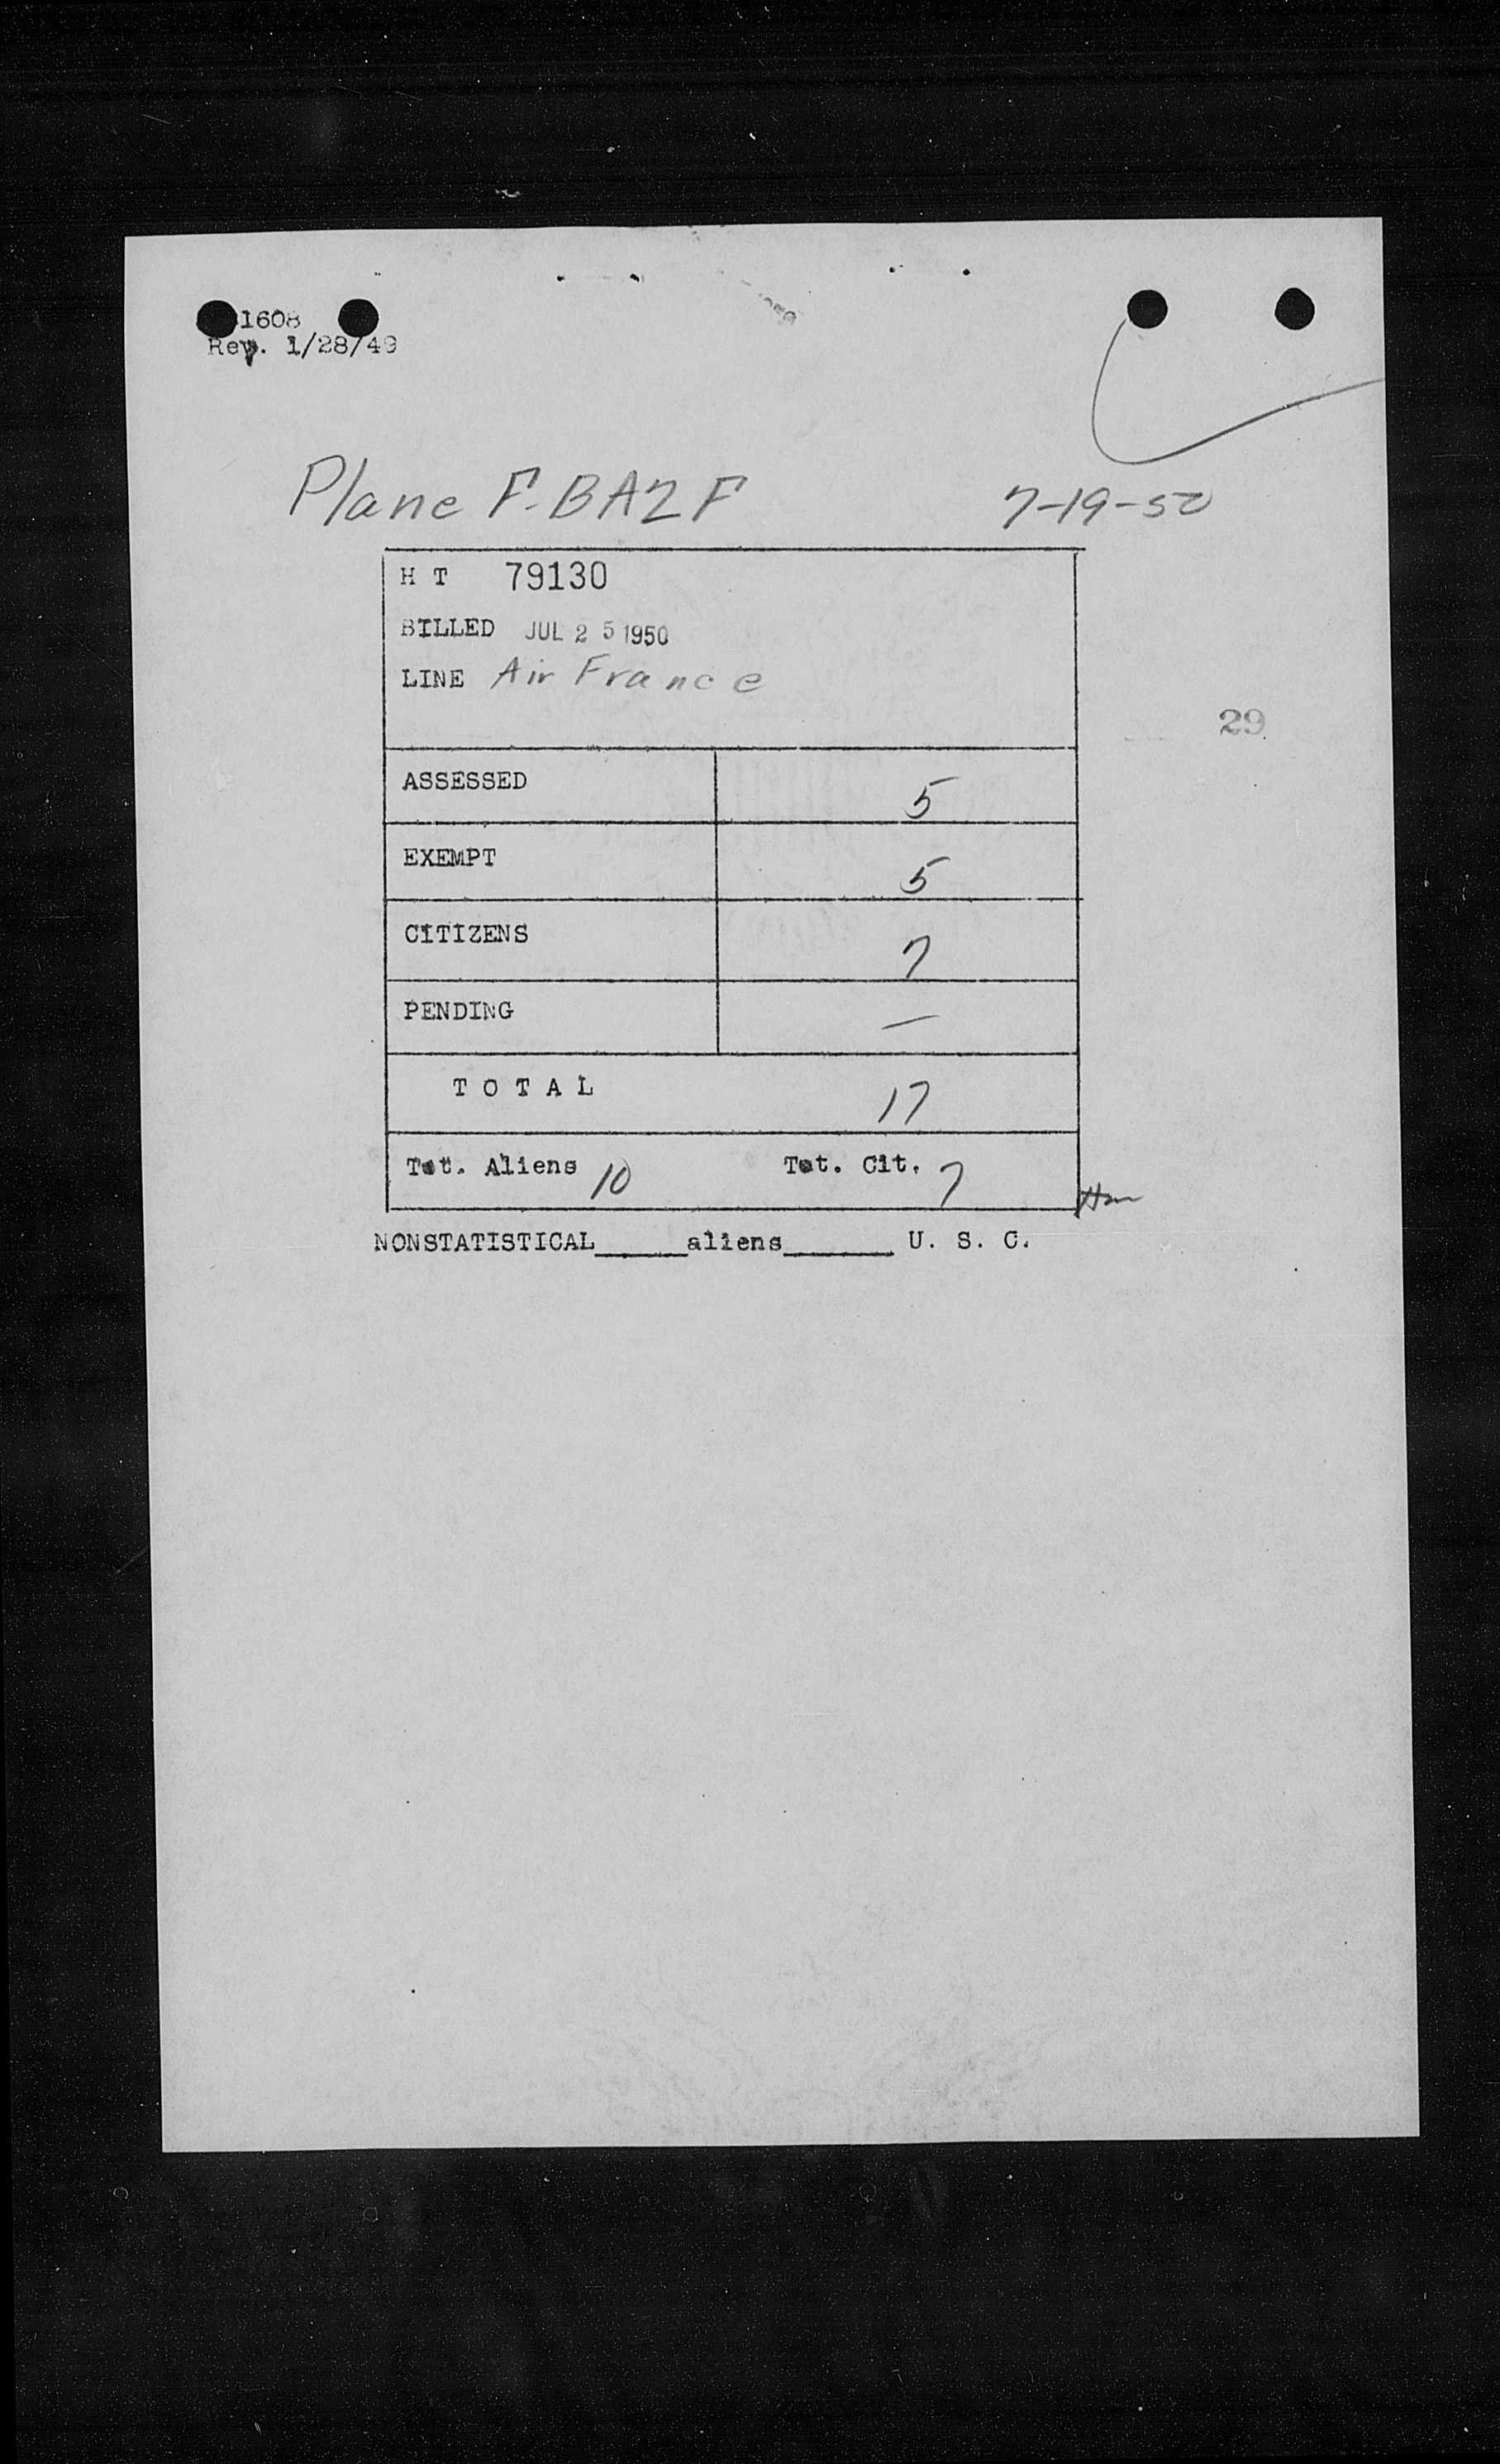 1608
Rev. 1/28/49
Plane F-BAZF 7-19-50
H T 79130
BILLED JUL 25 1950
LINE Air France
29
ASSESSED 5
EXEMPT 5
CITIZENS 7
PENDING —
T O T A L 17
Tot. Aliens 10 Tot. Cit. 7
NONSTATISTICAL_____aliens______ U. S. C.